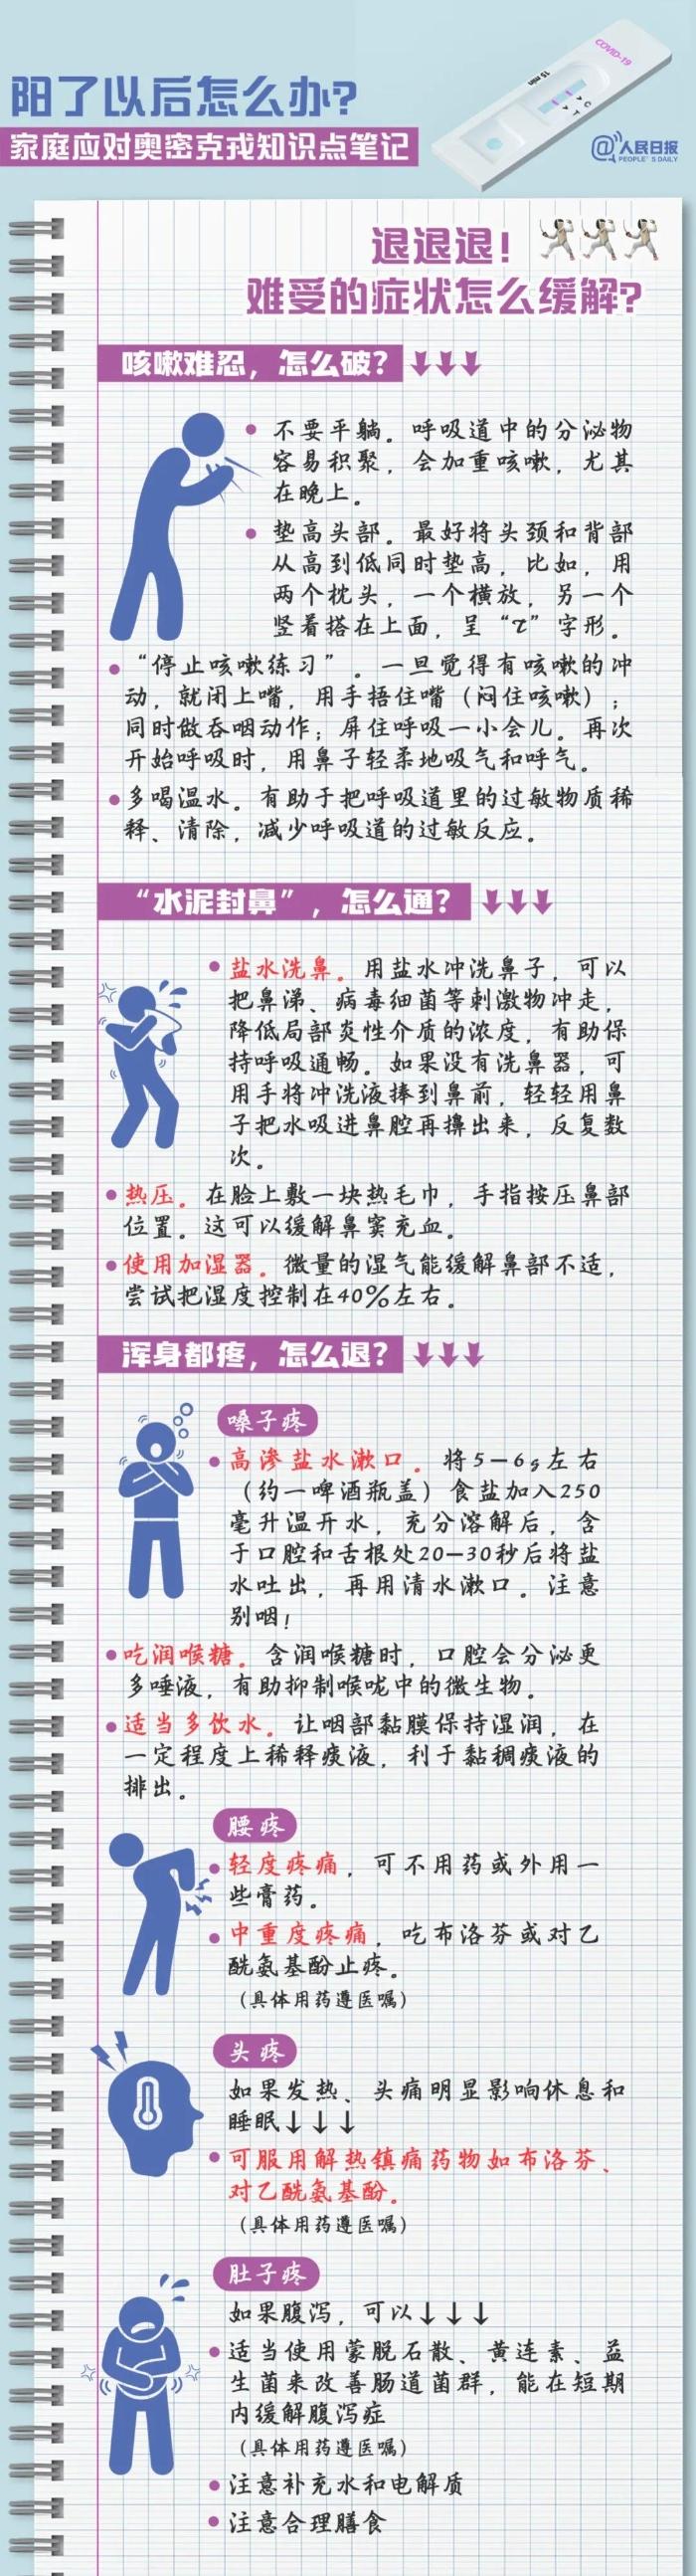 COVID-19
15 min
C
T
阳了以后怎么办?
家庭应对奥密克戎知识点笔记
@人民日报
PEOPLE'S DAILY
退退退!
难受的症状怎么缓解?
咳嗽难忍，怎么破?
不要平躺。呼吸道中的分泌物
容易积聚，会加重咳嗽，尤其
在晚上。
垫高头部。最好将头颈和背部
从高到低同时垫高，比如，用
两个枕头，一个横放，另一个
竖着搭在上面，呈“τ”字形。
“停止咳嗽练习”。一旦觉得有咳嗽的冲
动，就闭上嘴，用手捂住嘴（闷住咳嗽）；
同时做吞咽动作；屏住呼吸一小会儿。再次
开始呼吸时，用鼻子轻柔地吸气和呼气。
多喝温水。有助于把呼吸道里的过敏物质稀
释、清除，减少呼吸道的过敏反应。
“水泥封鼻”，怎么通?
盐水洗鼻。用盐水冲洗鼻子，可以
把鼻涕、病毒细菌等刺激物冲走，
降低局部炎性介质的浓度，有助保
持呼吸通畅。如果没有洗鼻器，可
用手将冲洗液捧到鼻前，轻轻用鼻
子把水吸进鼻腔再擤出来，反复数
次。
热压。在脸上敷一块热毛巾，手指按压鼻部
位置。这可以缓解鼻窦充血。
使用加湿器。微量的湿气能缓解鼻部不适，
尝试把湿度控制在40%左右。
浑身都疼，怎么退?
嗓子疼
高渗盐水漱口。将5—6g左右
（约一啤酒瓶盖）食盐加入250
毫升温开水，充分溶解后，含
于口腔和舌根处20—30秒后将盐
水吐出，再用清水漱口。注意
别咽!
吃润喉糖。含润喉糖时，口腔会分泌更
多唾液，有助抑制喉咙中的微生物。
适当多饮水。让咽部黏膜保持湿润，在
一定程度上稀释痰液，利于黏稠痰液的
排出。
腰疼
轻度疼痛，可不用药或外用一
些膏药。
中重度疼痛，吃布洛芬或对乙
酰氨基酚止疼。
（具体用药遵医嘱）
头疼
如果发热、头痛明显影响休息和
睡眠↓↓↓
可服用解热镇痛药物如布洛芬、
对乙酰氨基酚。
（具体用药遵医嘱）
肚子疼
如果腹泻，可以↓↓↓
适当使用蒙脱石散、黄连素、益
生菌来改善肠道菌群，能在短期
内缓解腹泻症
（具体用药遵医嘱）
注意补充水和电解质
注意合理膳食